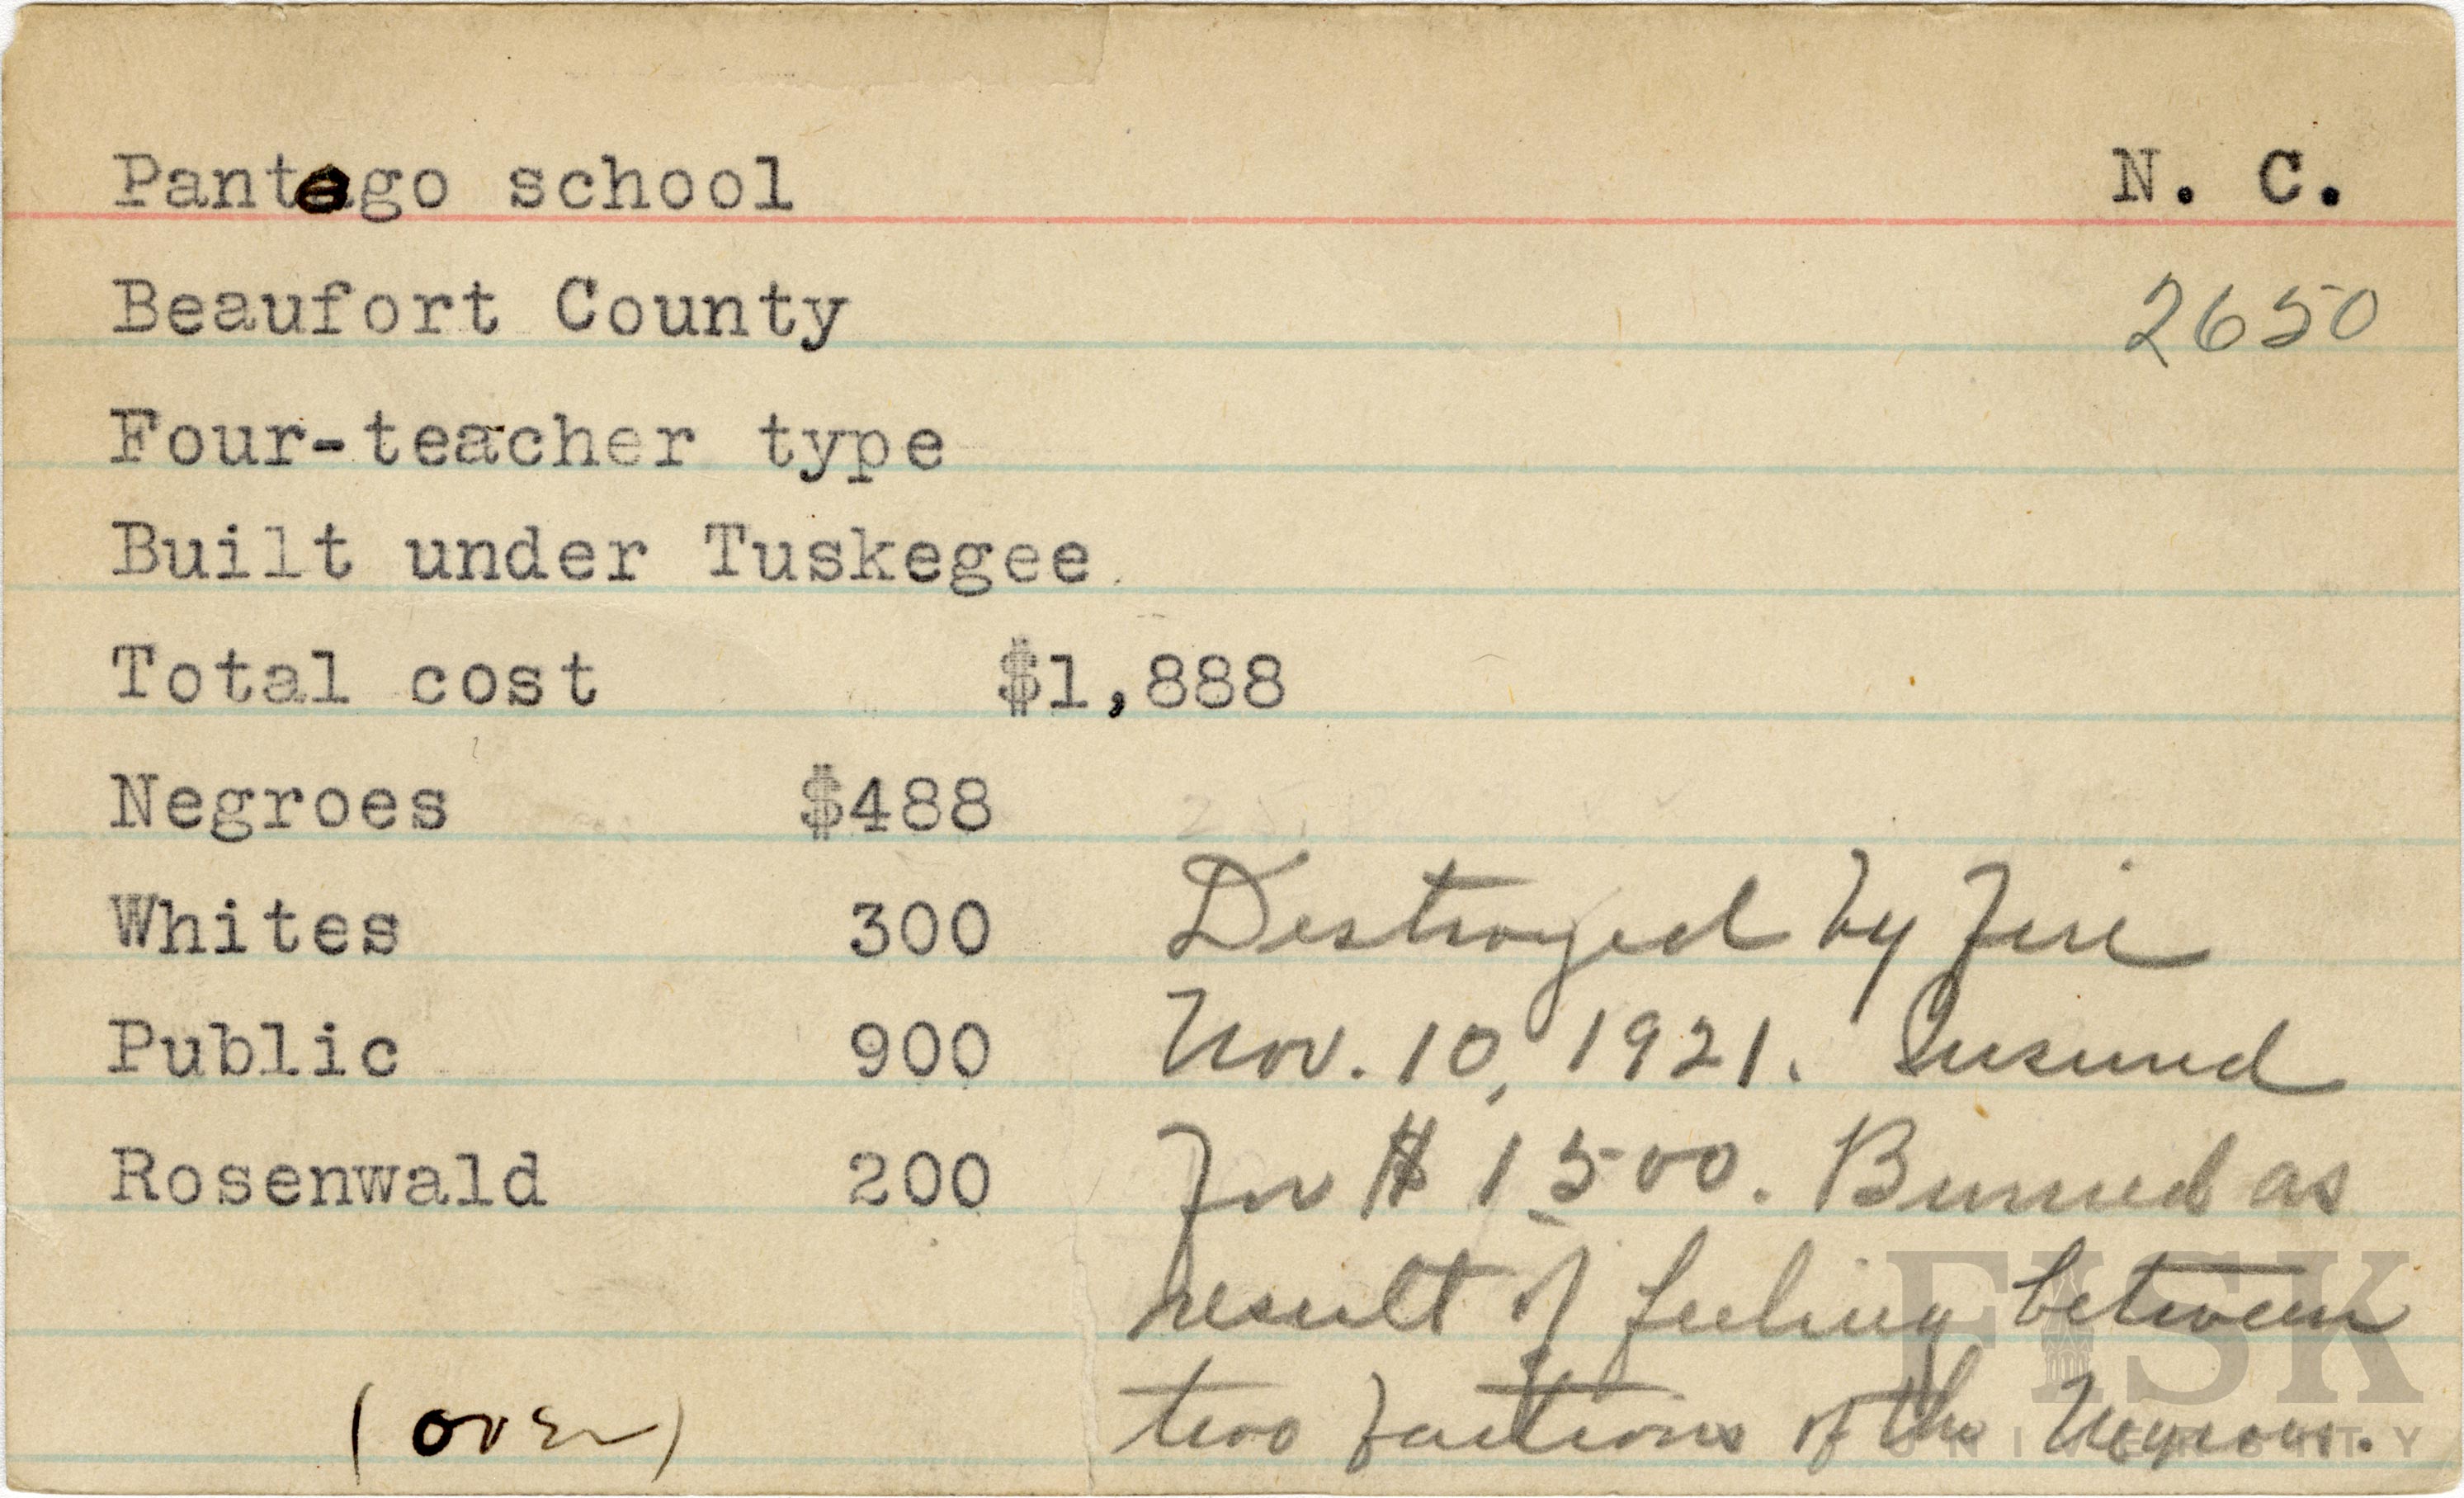 Pantego school N. C.
Beaufort County 2650
Four-teacher type
Built under Tuskegee
Total cost $1,888
Negroes $488
Whites 300
Public 900
Rosenwald 200
Destroyed by fire
Nov. 10, 1921. Insured
for $1500. Burned as
result of feeling between
two factions of the Negroes.
(over)
FISK
UNIVERSITY